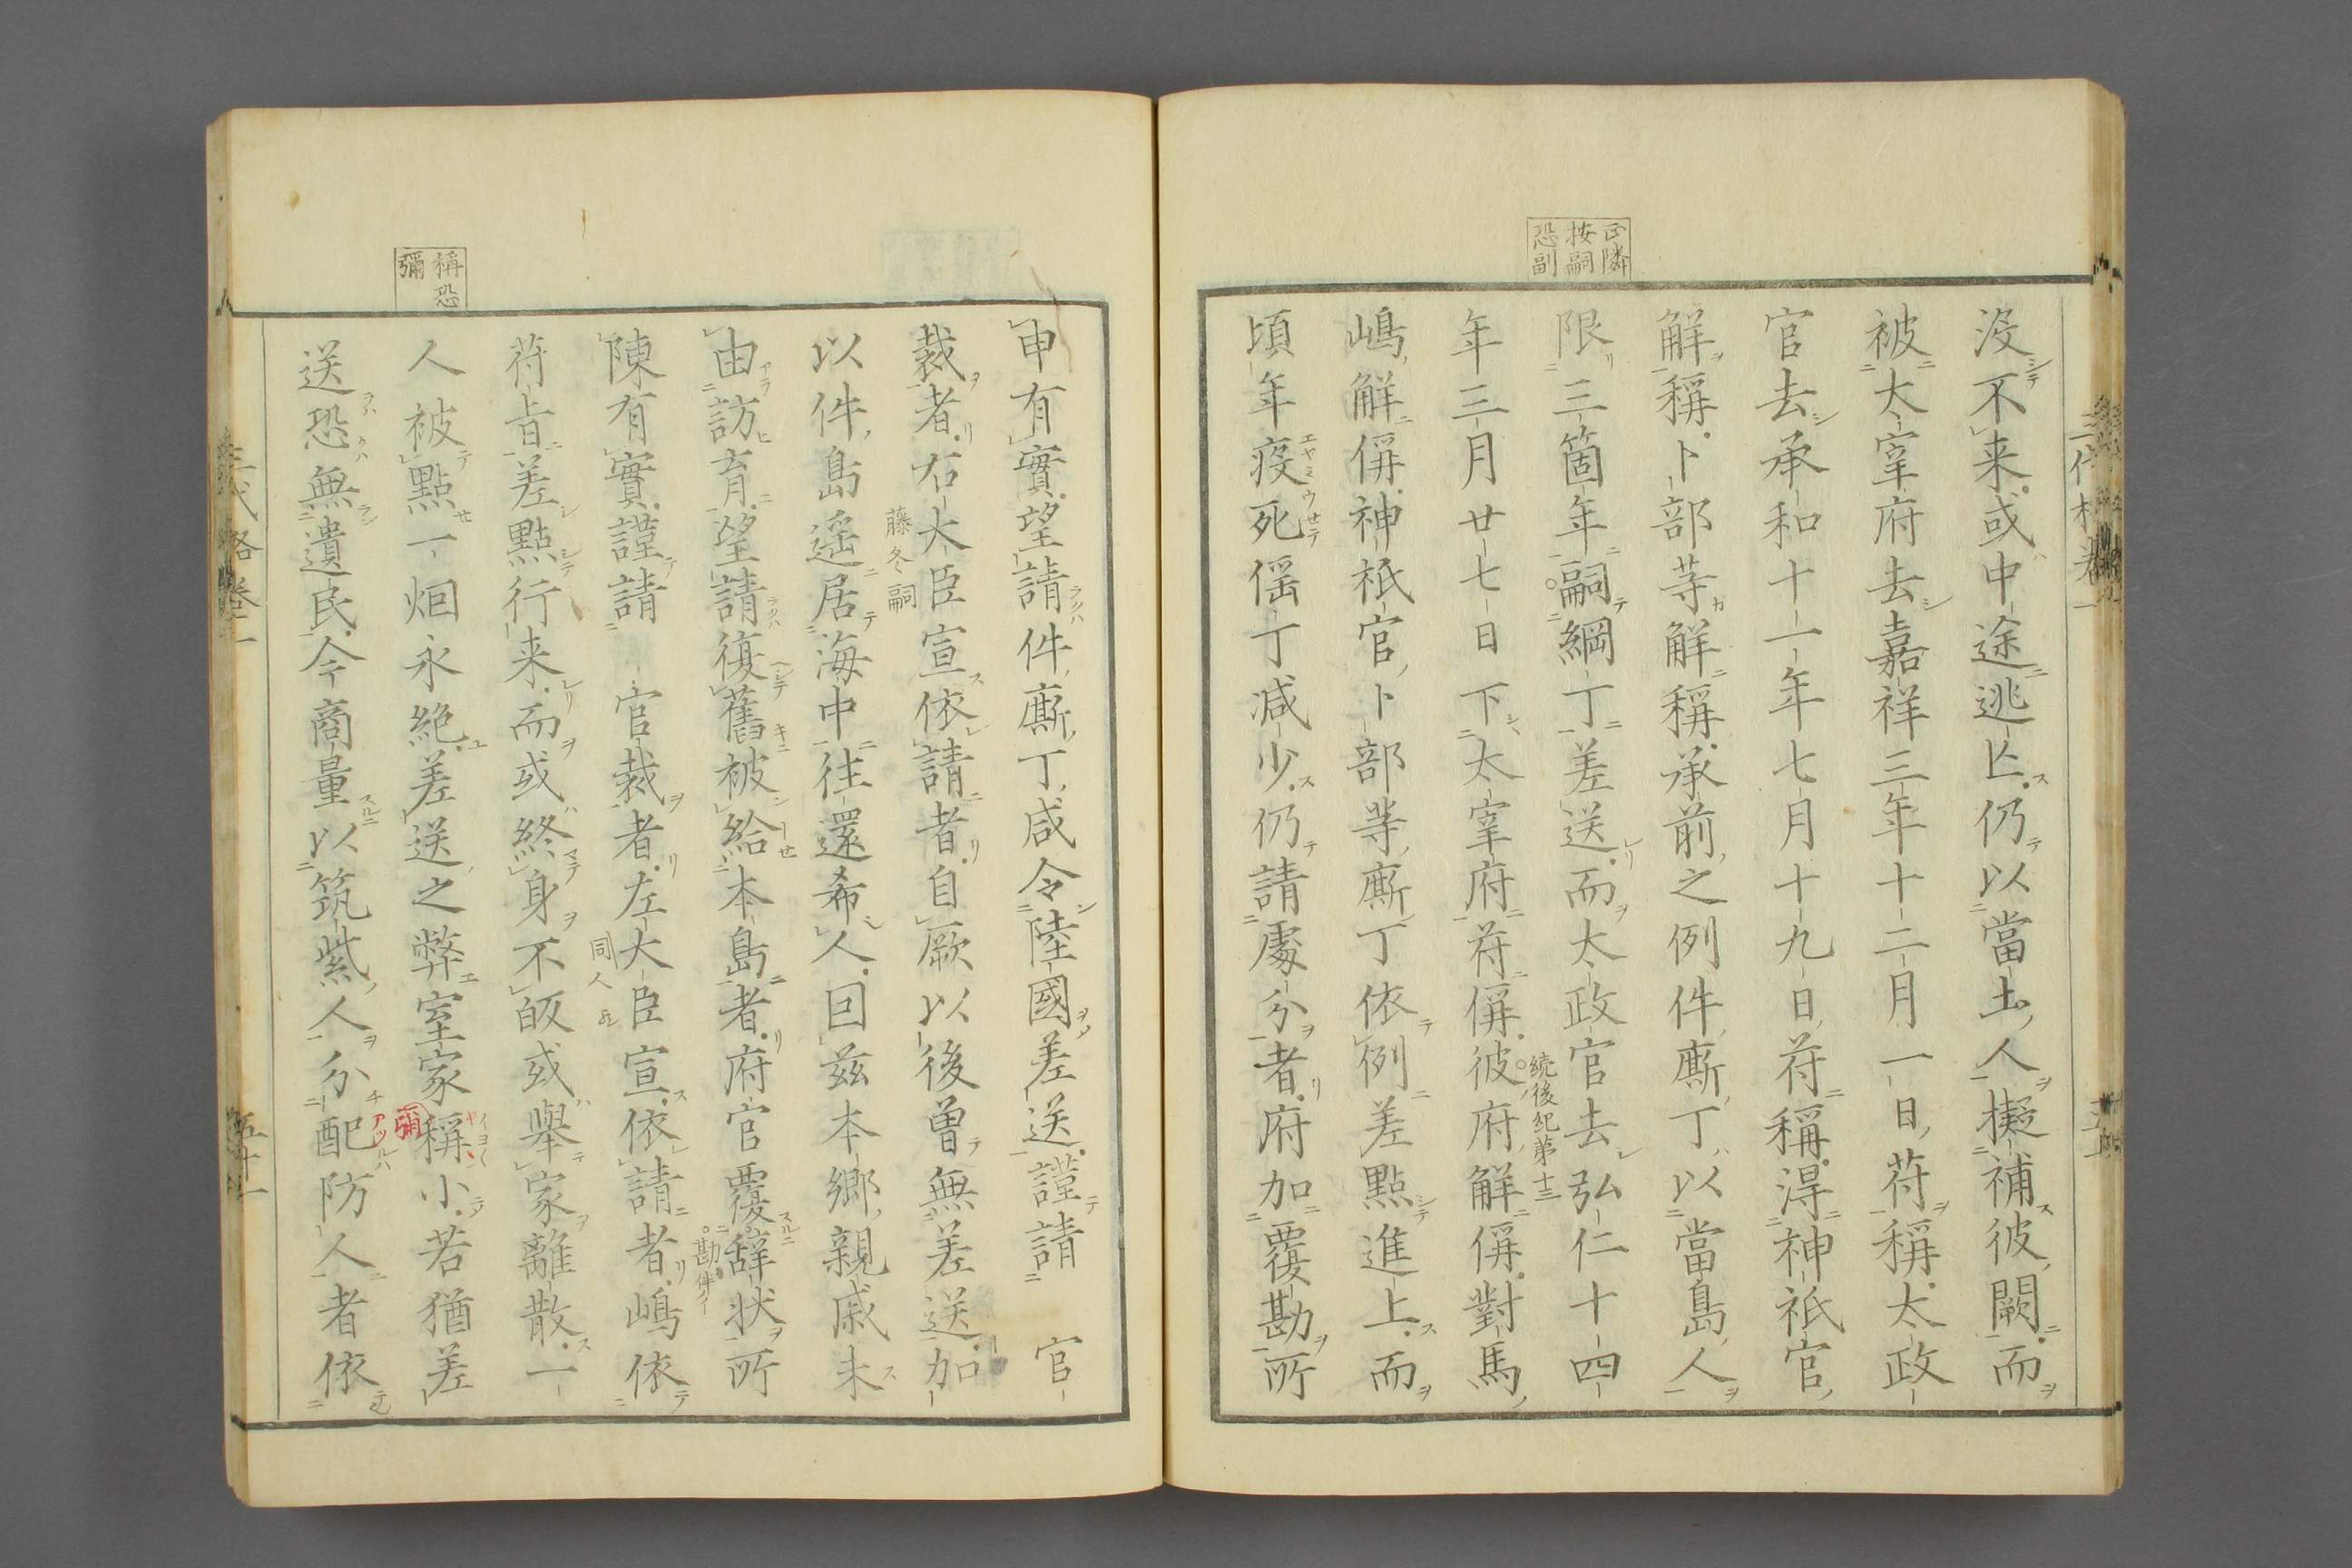 正隣
按嗣
恐副
沒不来或中途逃亡仍以當土人擬補彼闕而
被太宰府去嘉祥三年十二月一日符稱太政
官去承和十一年七月十九日符稱得神祇官
解稱卜部等解稱承前之例件廝丁以當島人
限三箇年嗣綱丁差送而太政官去弘仁十四
年三月廿七日下太宰府符偁彼府解偁對馬
続後紀第十三
嶋解偁神祇官卜部等廝丁依例差點進上而
頃年疫死傜丁減少仍請處分者府加覆勘所
申有實望請件廝丁咸令陸國差送謹請 官
裁者右大臣宣依請者自厥以後曽無差送加
藤冬嗣
以件島遥居海中往還希人回兹本郷親戚未
由訪育望請復舊被給本島者府官覆辭状所
勘伴
陳有實謹請 官裁者左大臣宣依請者嶋依
同人
符旨差點行来而或終身不皈或擧家離散一
人被點一烟永絶差送之弊室家稱小若猶差
彌
稱恐
彌
送恐無遺民今商量以筑紫人分配防人者依
三代格卷一
五十一